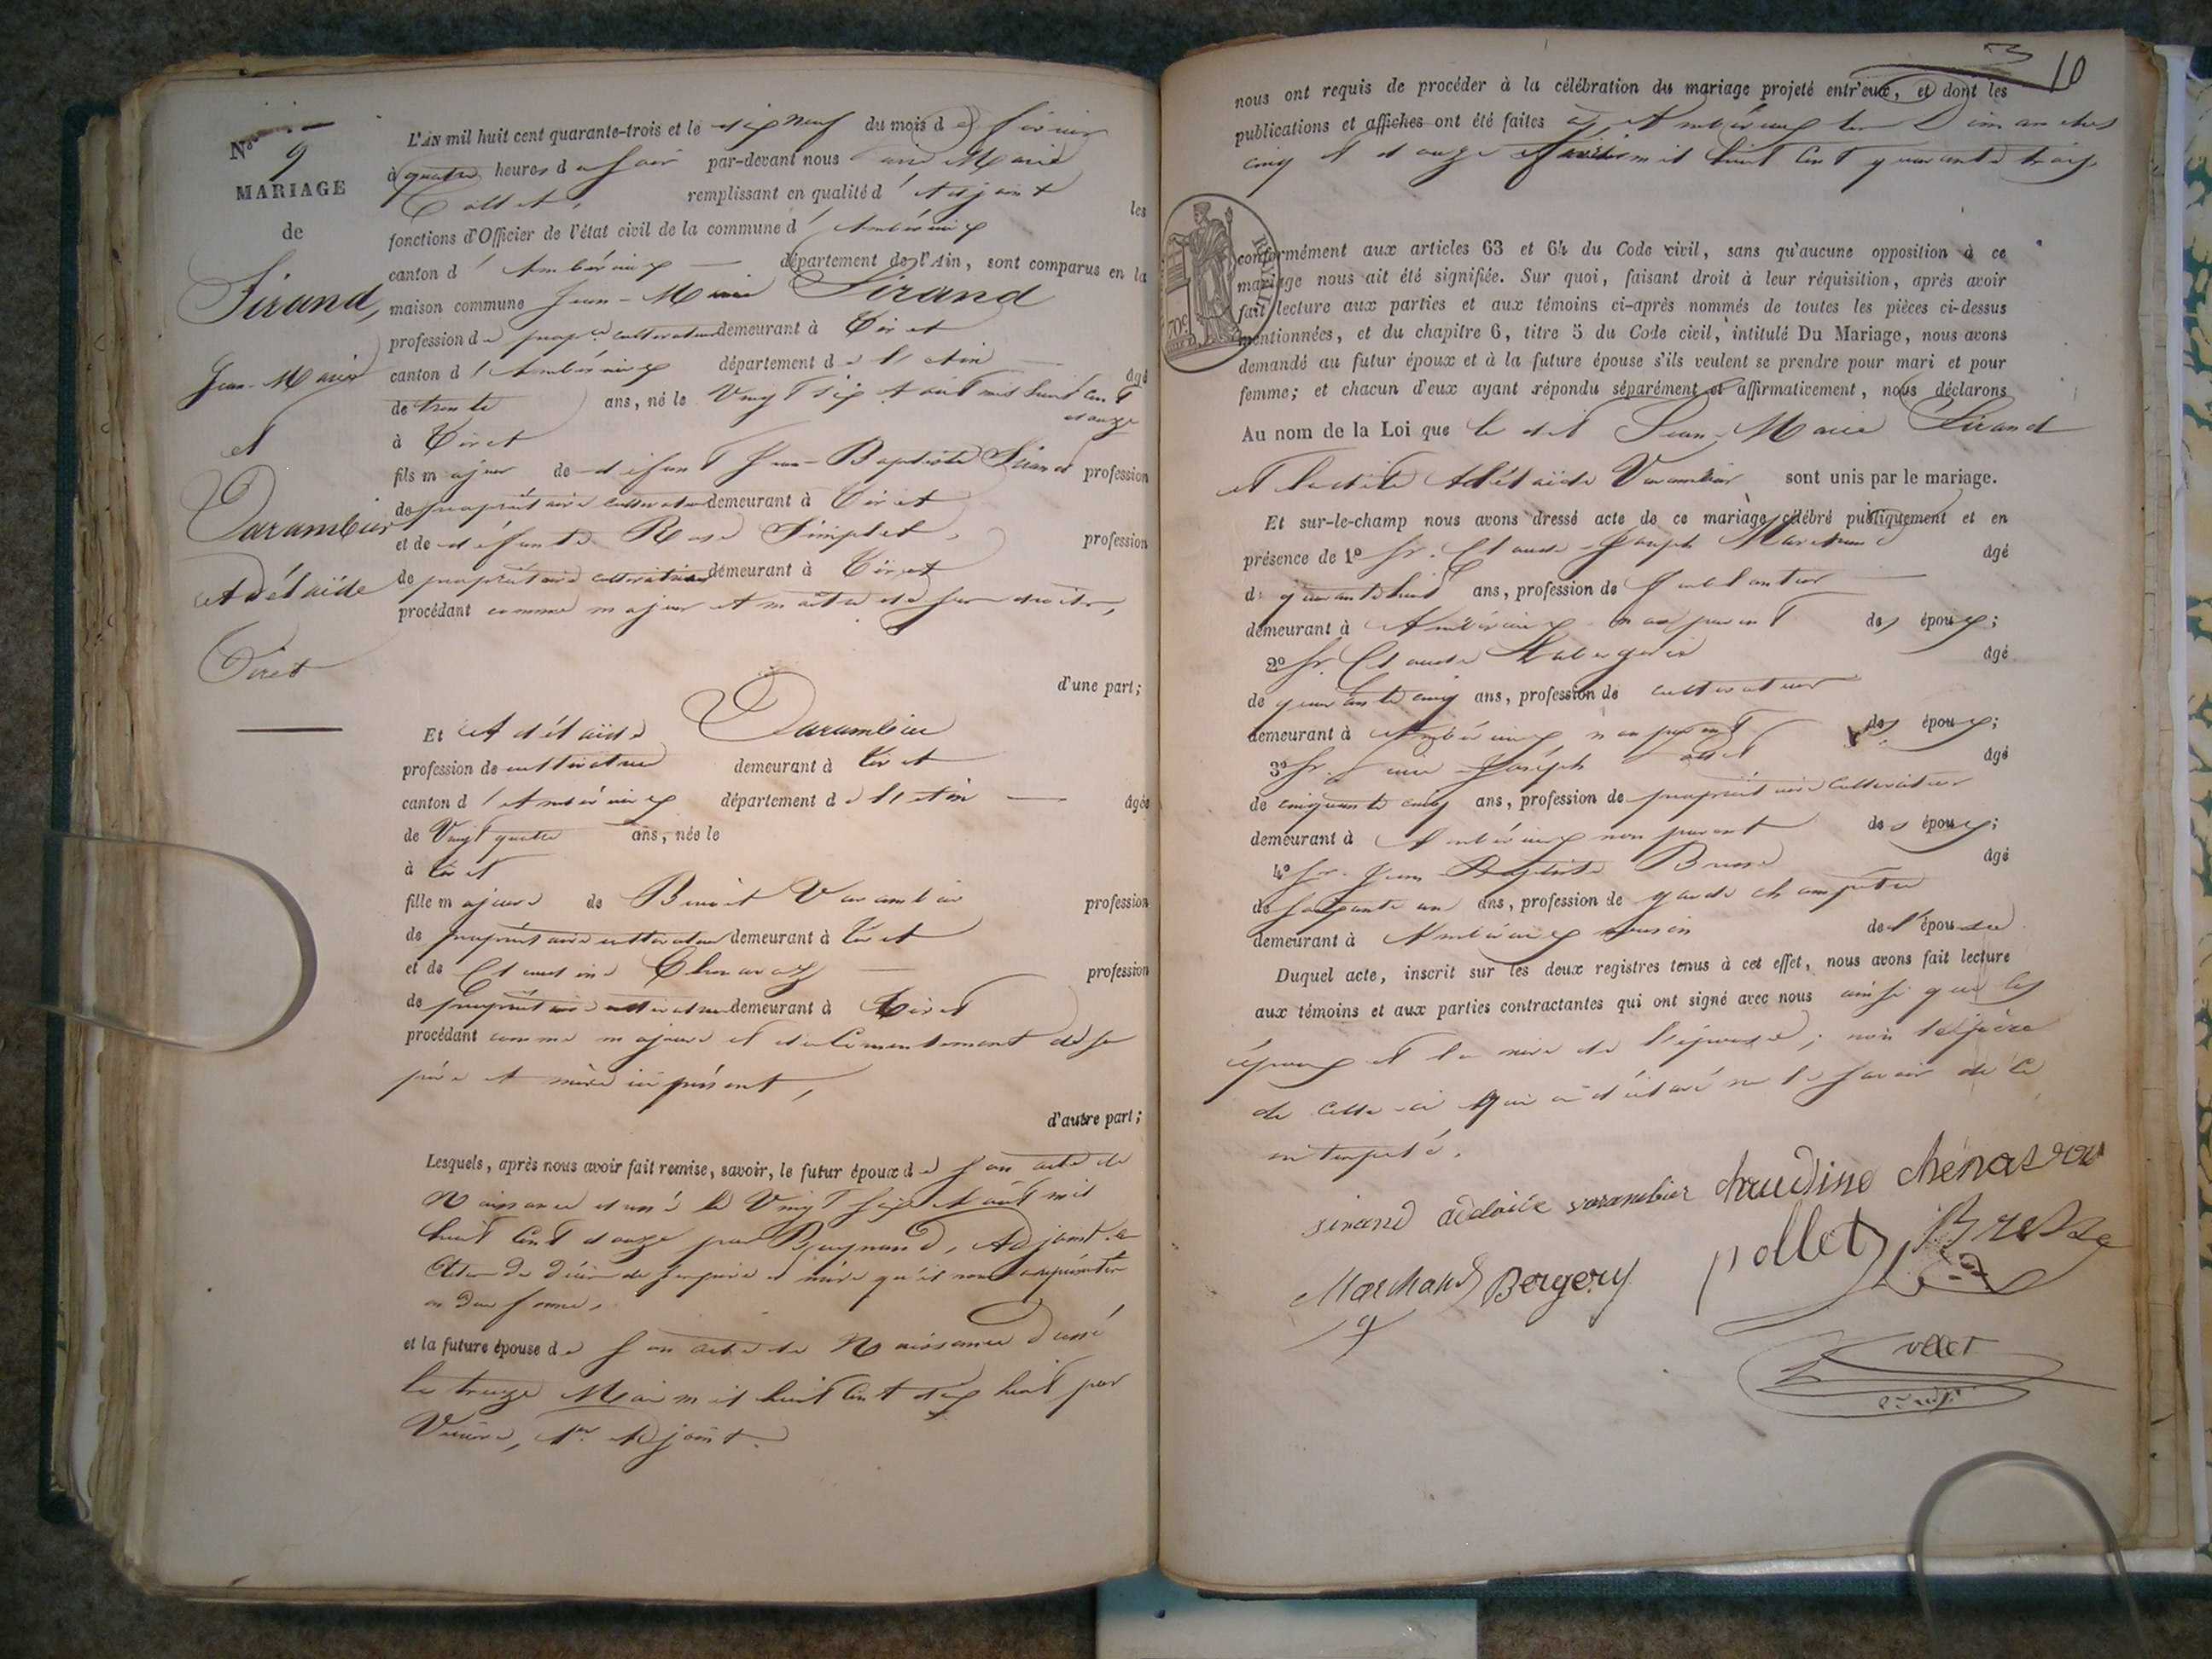 N° 9
MARIAGE
de
Sirand,
Jean-Marie
et
Varambier
Adélaïde
Tiret
L'AN mil huit cent quarante-trois et le dix neuf du mois de février
à quatre heures du soir par-devant nous Marie
Collet, remplissant en qualité d'Adjoint les
fonctions d'Officier de l'état civil de la commune d'Ambérieux
canton d'Ambérieux département de l'Ain, sont comparus en la
maison commune Jean-Marie Sirand
profession de prop.re cultivateur demeurant à Tiret
canton d'Ambérieux département de l'Ain âgé
de trente ans, né le Vingt six Août mil huit cent
douze
à Tiret
fils majeur de défunt Jean-Baptiste Sirand profession
de propriétaire cultivateur demeurant à Tiret
et de défunte Rose Simplet, profession
de propriétaire cultivatrice demeurant à Tiret
procédant comme majeur et maître de ses droits,
d'une part;
Et Adélaïde Varambier
profession de cultivatrice demeurant à Tiret
canton d'Ambérieux département de l'Ain âgée
de Vingt quatre ans, née le
à Tiret
fille majeure de Benoit Varambier profession
de propriétaire cultivateur demeurant à Tiret
et de Claudine Chenavaz profession
de propriétaire cultivatrice demeurant à Tiret
procédant comme majeure et du consentement de ses
père et mère ici présent,
d'autre part;
Lesquels, après nous avoir fait remise, savoir, le futur époux de son acte de
Naissance dressé le Vingt six Août mil
huit Cent douze par , Adjoint
Actes de Décès de ses père et mère qu'il nous a représentés
en due forme,
et la future épouse de son acte de Naissance Dressé
le treize Mai mil huit Cent dix huit par
, 1er Adjoint.
10
nous ont requis de procéder à la célébration du mariage projeté entr'eux, et dont les
publications et affiches ont été faites à Ambérieux les Dimanches
cinq et douze février mil huit Cent quarante trois
conformément aux articles 63 et 64 du Code civil, sans qu'aucune opposition à ce
mariage nous ait été signifiée. Sur quoi, faisant droit à leur réquisition, après avoir
fait lecture aux parties et aux témoins ci-après nommés de toutes les pièces ci-dessus
mentionnées, et du chapitre 6, titre 5 du Code civil, intitulé Du Mariage, nous avons
demandé au futur époux et à la future épouse s'ils veulent se prendre pour mari et pour
femme; et chacun d'eux ayant répondu séparément et affirmativement, nous déclarons
Au nom de la Loi que le dit Jean-Marie Sirand
et ladite Adélaïde Varambier sont unis par le mariage.
Et sur-le-champ nous avons dressé acte de ce mariage célébré publiquement et en
présence de 1° Sr. Claude-Joseph Marchand âgé
de quarante huit ans, profession de ferblantier
demeurant à Ambérieux non parent des époux;
2° Sr. Claude âgé
de quarante cinq ans, profession de cultivateur
demeurant à Ambérieux non parent des époux;
3° Sr. Joseph âgé
de cinquante cinq ans, profession de propriétaire cultivateur
demeurant à Ambérieux non parent des époux;
4° Sr. Jean-Baptiste Bresse âgé
de soixante un ans, profession de garde champêtre
demeurant à Ambérieux cousin de l'épouse
Duquel acte, inscrit sur les deux registres tenus à cet effet, nous avons fait lecture
aux témoins et aux parties contractantes qui ont signé avec nous ainsi que les
époux et la mère de l'épouse; non le père
de celle-ci qui a déclaré ne le savoir de ce
interpelé.
sirand adelaide varambier claudine chenavaz
Marchand Bergery pollet Bresse